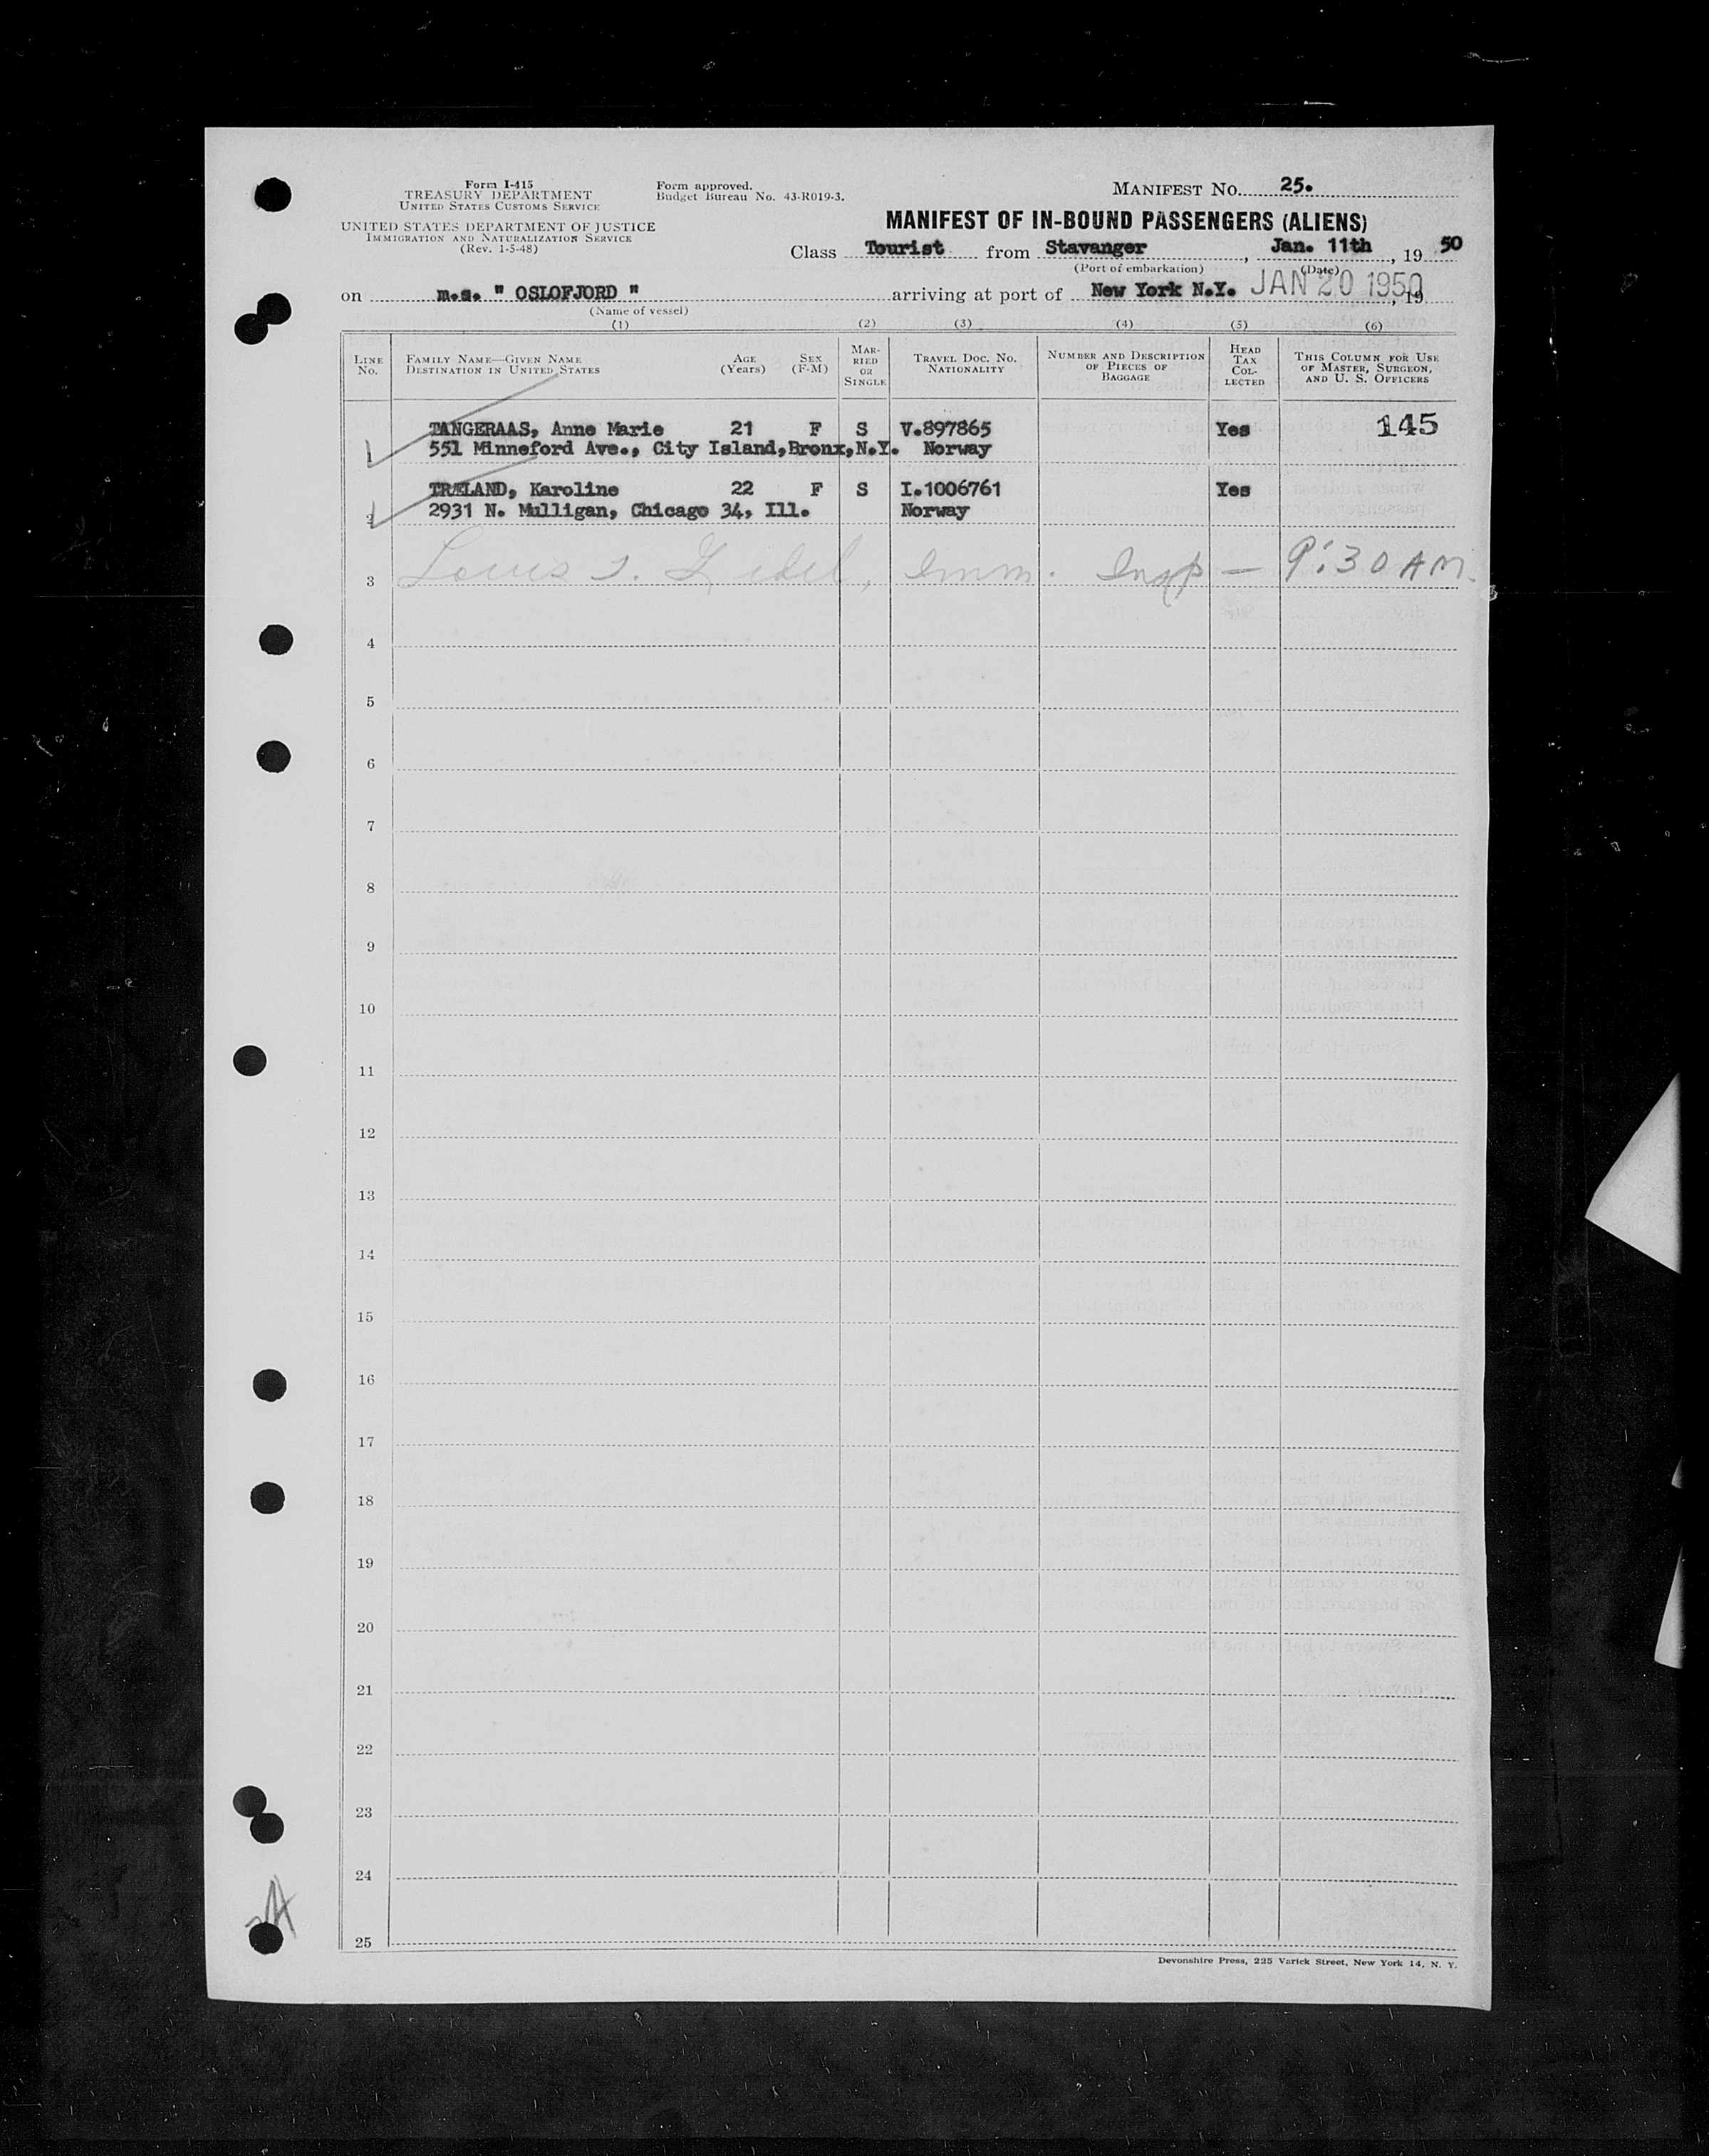 Form I-415
TREASURY DEPARTMENT
UNITED STATES CUSTOMS SERVICE
UNITED STATES DEPARTMENT OF JUSTICE
IMMIGRATION AND NATURALIZATION SERVICE
(Rev. 1-5-48)
Form approved.
Budget Bureau No. 43-R019-3.
MANIFEST No. 25.
MANIFEST OF IN-BOUND PASSENGERS (ALIENS)
Class Tourist from Stavanger, Jan. 11th, 19 50
(Port of embarkation) (Date)
on m.s. " OSLOFJORD " arriving at port of New York N.Y. JAN 20 1950, 19
(Name of vessel)
(1) (2) (3) (4) (5) (6)
LINE No. FAMILY NAME—GIVEN NAME DESTINATION IN UNITED STATES AGE (Years) SEX (F-M) MARRIED OR SINGLE TRAVEL DOC. NO. NATIONALITY NUMBER AND DESCRIPTION OF PIECES OF BAGGAGE HEAD TAX COLLECTED THIS COLUMN FOR USE OF MASTER, SURGEON, AND U. S. OFFICERS
TANGERAAS, Anne Marie 21 F S V.897865 Yes 145
1 551 Minneford Ave., City Island,Bronx,N.Y. Norway
TRÆLAND, Karoline 22 F S I.1006761 Yes
2 2931 N. Mulligan, Chicago 34, Ill. Norway
3 Louis Imm. Insp — 9:30 AM.
4
5
6
7
8
9
10
11
12
13
14
15
16
17
18
19
20
21
22
23
24
25
Devonshire Press, 225 Varick Street, New York 14, N. Y.